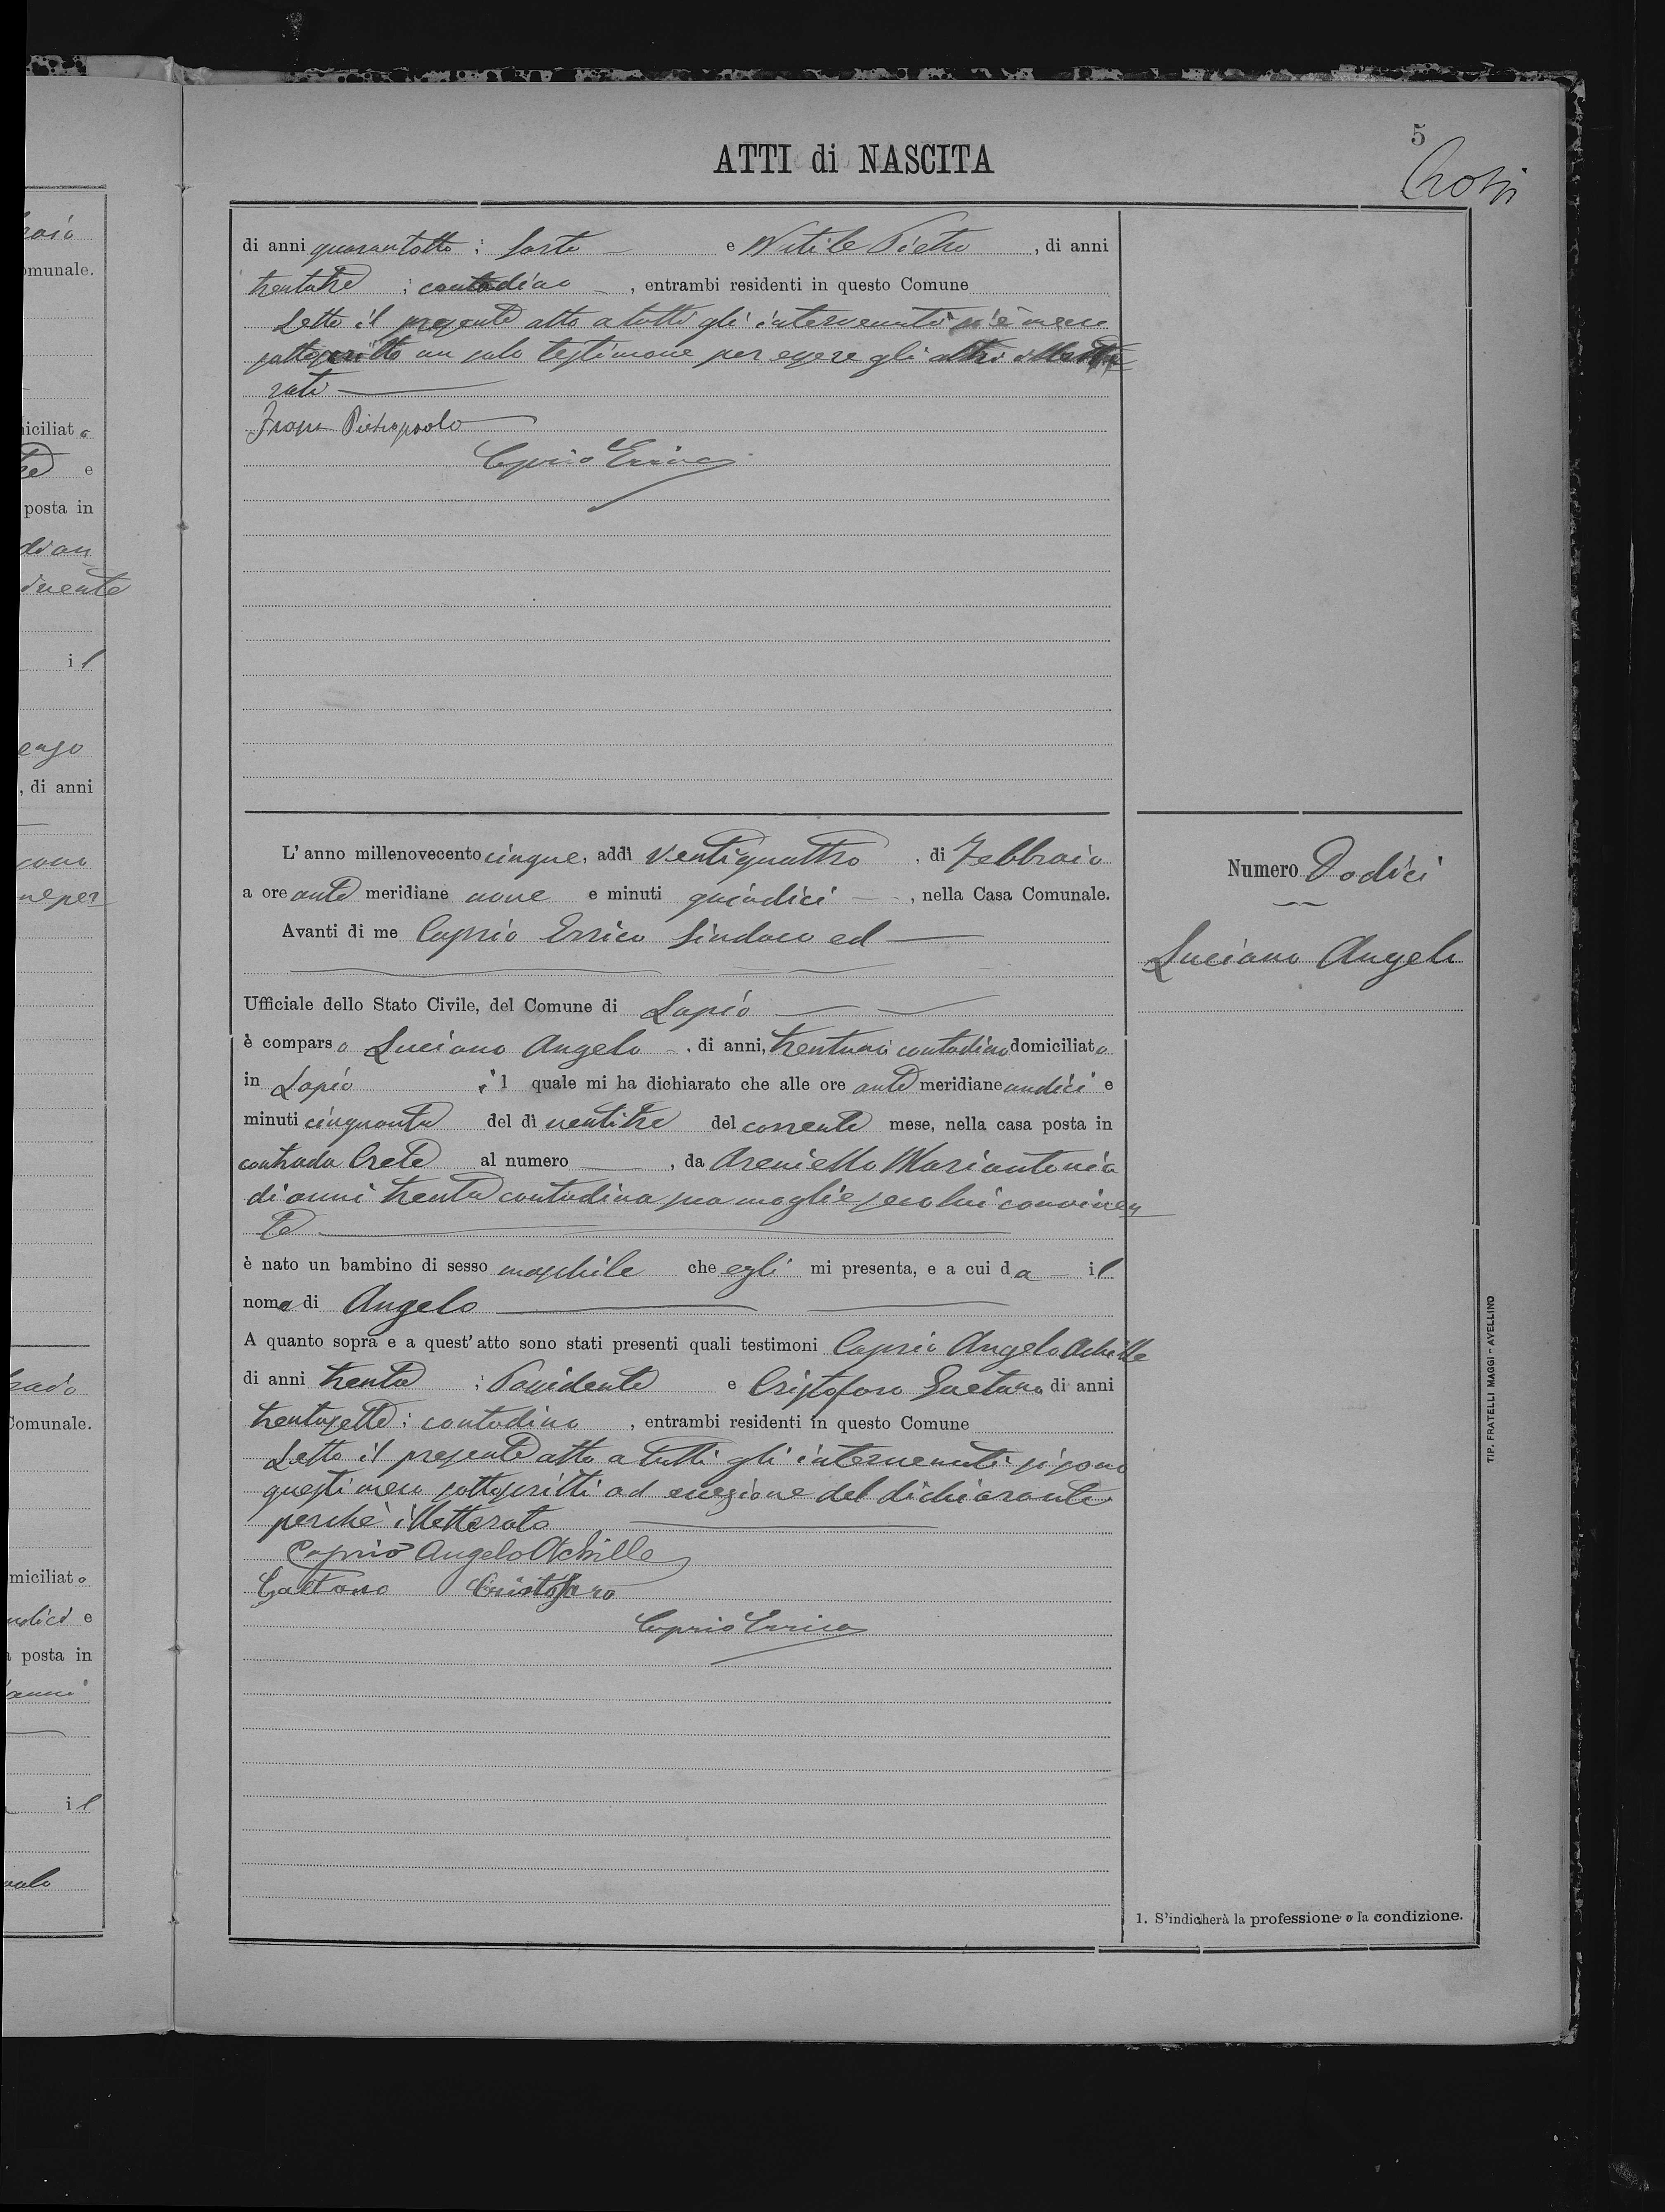 5
ATTI di NASCITA
di anni quarantotto ; Sarto e Nitile Pietro , di anni
trentatre ; contadino , entrambi residenti in questo Comune
Letto il presente atto a tutti gli intervenuti si è meco
sottoscritto un solo testimone per essere gli altri illette
rati
Pietropaolo
Caprio Errico
L' anno millenovecento cinque, addì ventiquattro , di Febbraio
a ore ante meridiane nove e minuti quindici , nella Casa Comunale.
Avanti di me Caprio Errico Sindaco ed
Ufficiale dello Stato Civile, del Comune di Lapio
è comparso Luciano Angelo , di anni, trentuno contadino domiciliato
in Lapio il quale mi ha dichiarato che alle ore ante meridiane undici e
minuti cinquanta del dì ventitre del corrente mese, nella casa posta in
contrada Crete al numero , da Areniello Mariantonia
di anni trenta contadina sua moglie seco lui conviven
te
è nato un bambino di sesso maschile che egli mi presenta, e a cui da il
nome di Angelo
A quanto sopra e a quest' atto sono stati presenti quali testimoni Caprio Angelo Achille
di anni trenta ; Possidente e Cristofaro Gaetano di anni
trentasette ; contadino , entrambi residenti in questo Comune
Letto il presente atto a tutti gli intervenuti si sono
questi meco sottoscritti ad eccezione del dichiarante
perchè illetterato
Caprio Angelo Achille
Gaetano Cristofaro
Caprio Errico
Numero Dodici
Luciano Angelo
1. S'indicherà la professione o la condizione.
TIP. FRATELLI MAGGI - AVELLINO
omunale.
iciliato
e
posta in
il
, di anni
Comunale.
miciliato
e
posta in
il